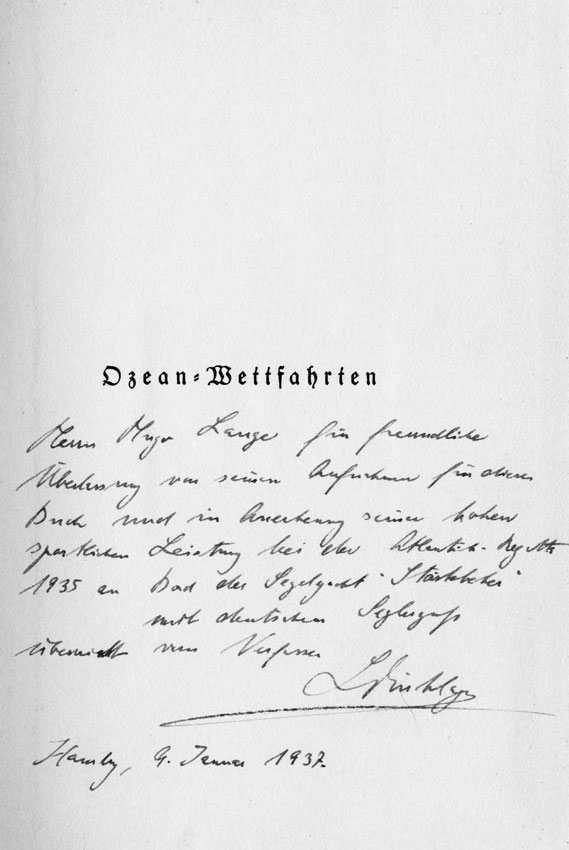 Ozean-Wettfahrten
Herrn Hugo Lange für freundliche
Überlassung von seinen Aufnahmen für dieses
Buch und in Anerkennung seiner hohen
sportlichen Leistung bei der Atlantik-Regatta
1935 an Bord der Segelyacht "Störtebeker"
mit deutschem Seglergruß
überreicht vom Verfasser
Hamburg, 9. Januar 1937.